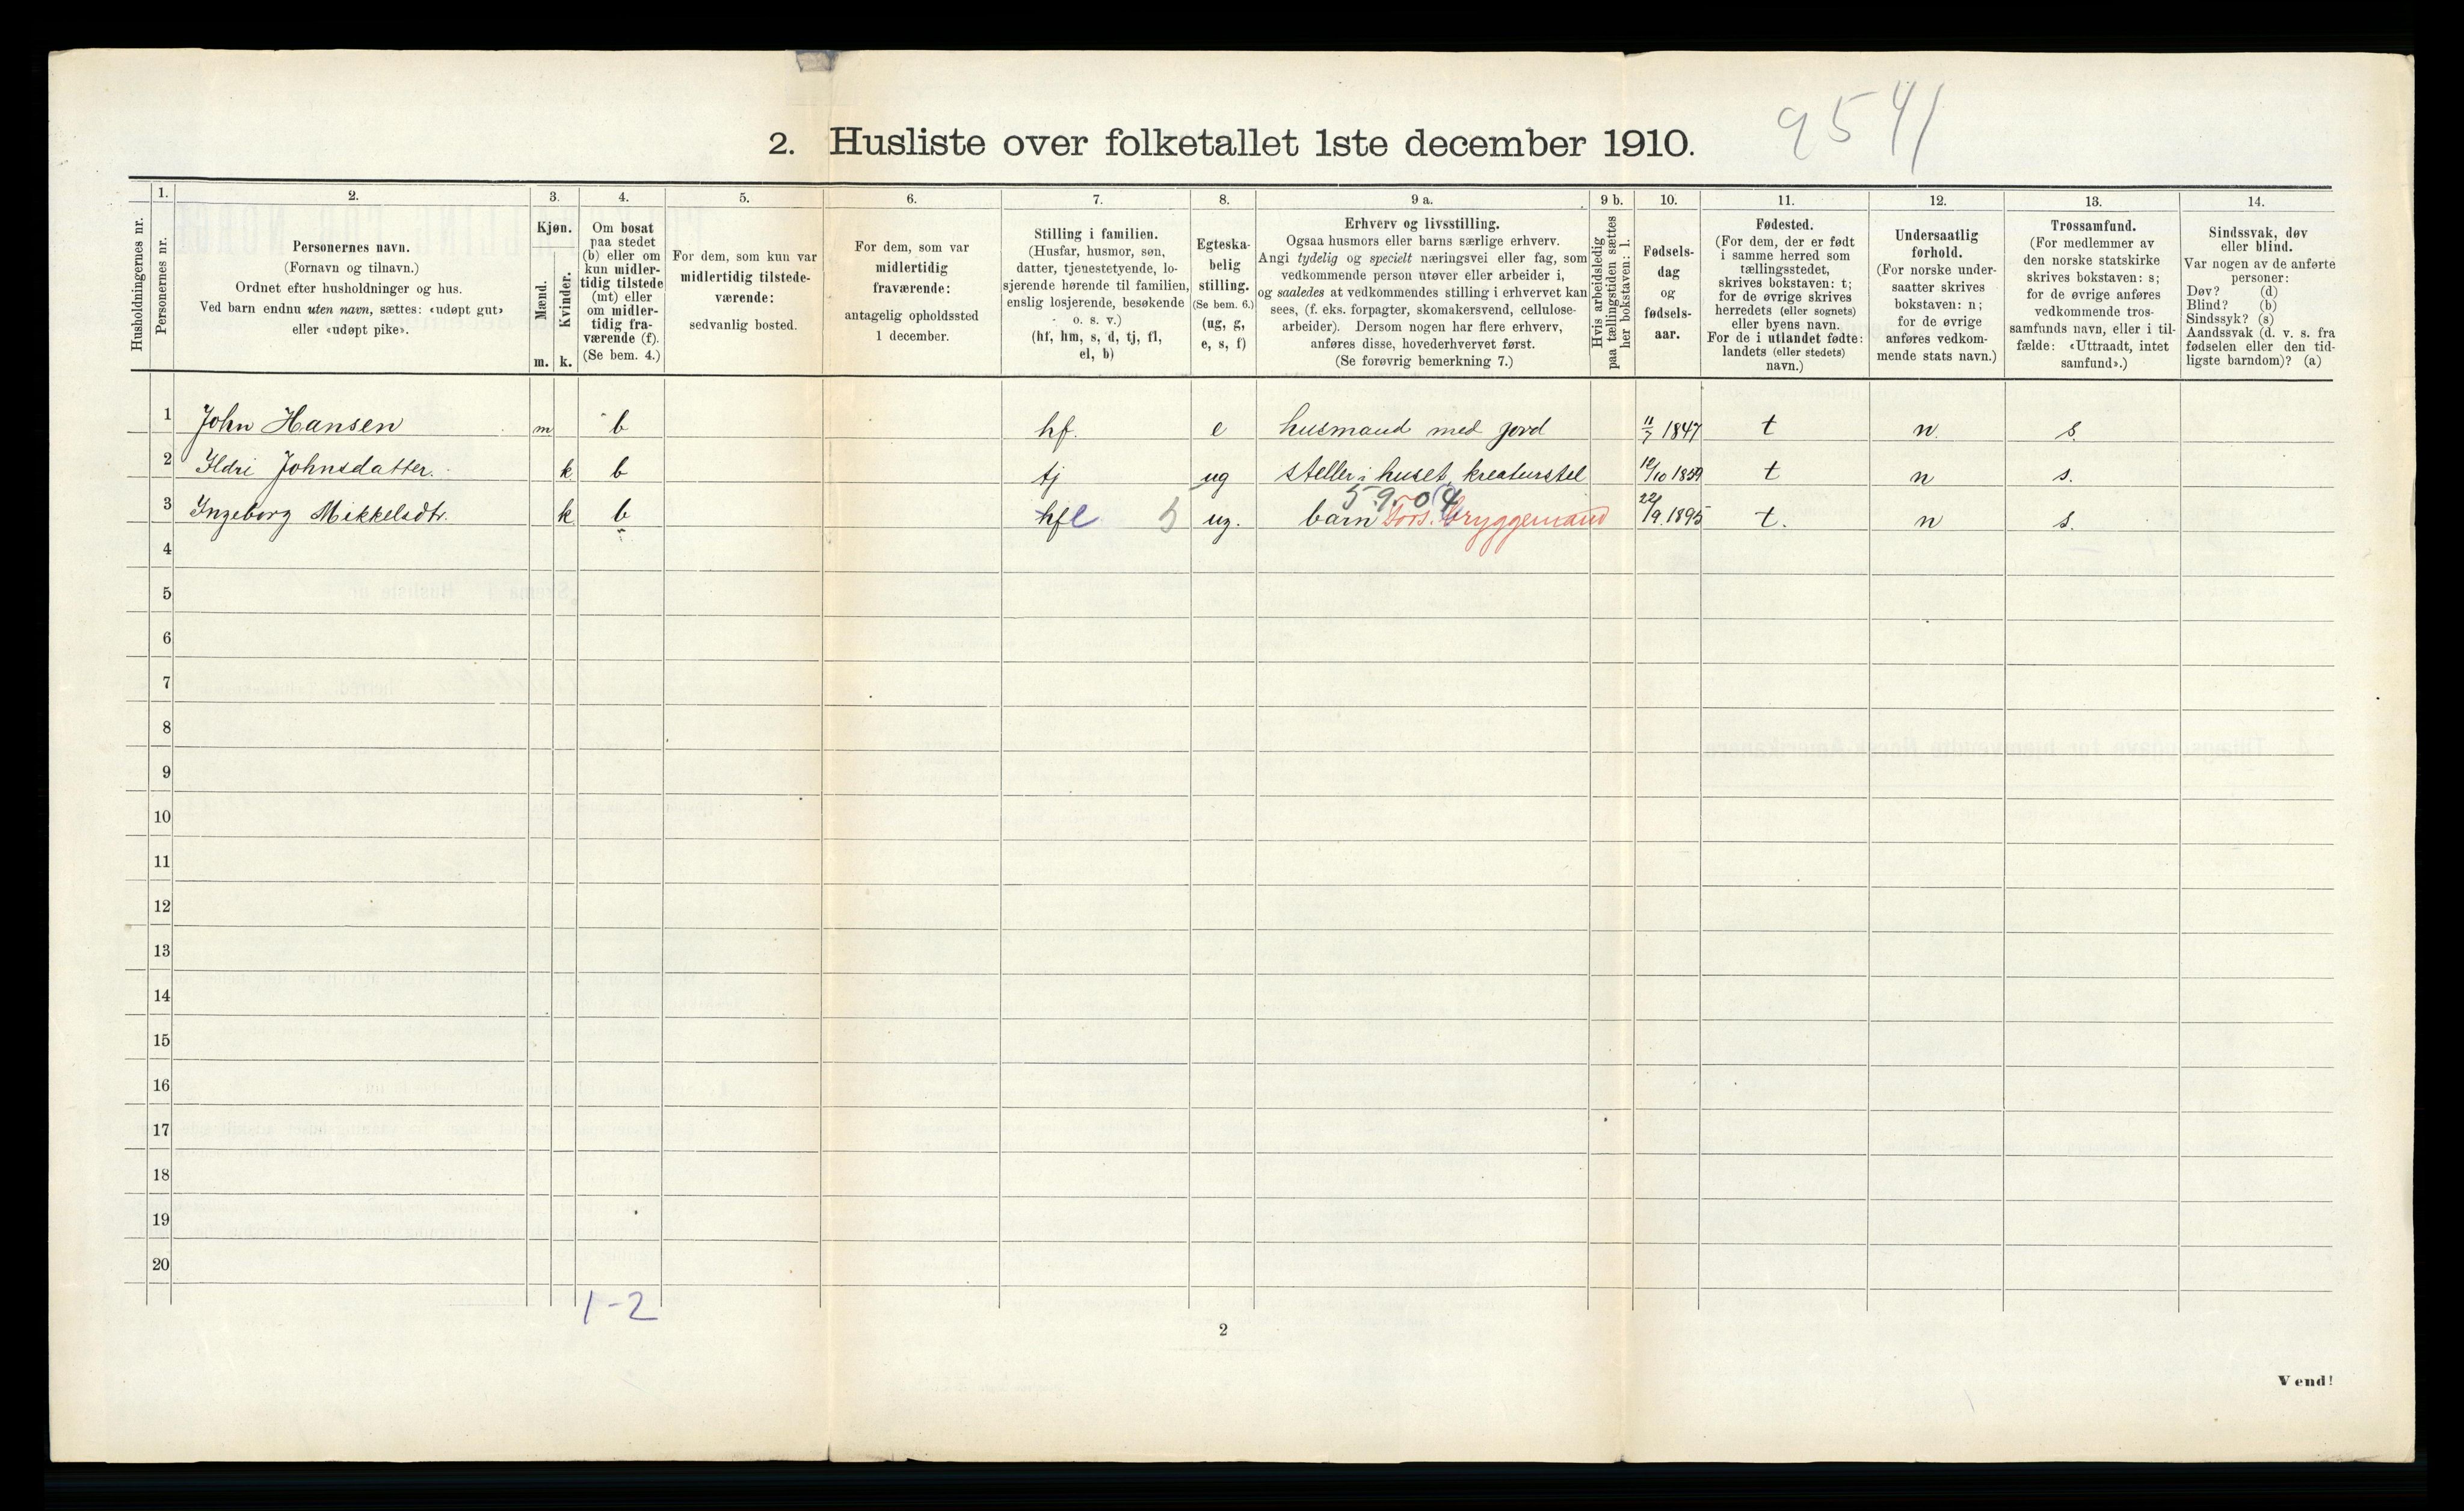 9541
2. Husliste over folketallet 1ste december 1910.
Husholdningernes nr.
1.
Personernes nr.
2.
Personernes navn.
(Fornavn og tilnavn.)
Ordnet efter husholdninger og hus.
Ved barn endnu uten navn, sættes: «udøpt gut»
eller «udøpt pike».
3.
Kjøn.
Mænd.
m.
Kvinder.
k.
4.
Om bosat
paa stedet
(b) eller om
kun midler-
tidig tilstede
(mt) eller
om midler-
tidig fra-
værende (f).
(Se bem. 4.)
5.
For dem, som kun var
midlertidig tilstede-
værende:
sedvanlig bosted.
6.
For dem, som var
midlertidig
fraværende:
antagelig opholdssted
1 december.
7.
Stilling i familien.
(Husfar, husmor, søn,
datter, tjenestetyende, lo-
sjerende hørende til familien,
enslig losjerende, besøkende
o. s. v.)
(hf, hm, s, d, tj, fl,
el, b)
8.
Egteska-
belig
stilling.
(Se bem. 6.)
(ug, g,
e, s, f)
9 a.
Erhverv og livsstilling.
Ogsaa husmors eller barns særlige erhverv.
Angi tydelig og specielt næringsvei eller fag, som
vedkommende person utøver eller arbeider i,
og saaledes at vedkommendes stilling i erhvervet kan
sees, (f. eks. forpagter, skomakersvend, cellulose-
arbeider). Dersom nogen har flere erhverv,
anføres disse, hovederhvervet først.
(Se forøvrig bemerkning 7.)
9 b.
Hvis arbeidsledig
paa tællingstiden sættes
her bokstaven: l.
10.
Fødsels-
dag
og
fødsels-
aar.
11.
Fødested.
(For dem, der er født
i samme herred som
tællingsstedet,
skrives bokstaven: t;
for de øvrige skrives
herredets (eller sognets)
eller byens navn.
For de i utlandet fødte:
landets (eller stedets)
navn.)
12.
Undersaatlig
forhold.
(For norske under-
saatter skrives
bokstaven: n;
for de øvrige
anføres vedkom-
mende stats navn.)
13.
Trossamfund.
(For medlemmer av
den norske statskirke
skrives bokstaven: s;
for de øvrige anføres
vedkommende tros-
samfunds navn, eller i til-
fælde: «Uttraadt, intet
samfund».)
14.
Sindssvak, døv
eller blind.
Var nogen av de anførte
personer:
Døv? (d)
Blind? (b)
Sindssyk? (s)
Aandssvak (d. v. s. fra
fødselen eller den tid-
ligste barndom)? (a)
1 John Hansen m b hf. e husmand med jord 11/7 1847 t n. s.
2 Ildri Johnsdatter. k b tj ug steller i huset, kreaturstel 12/10 1859 t n s.
3 Ingeborg Mikkelsdtr. k b hfl 5 ug. barn 5.9.04 Fors. Gryggemand 22/9. 1895 t. n s.
4
5
6
7
8
9
10
11
12
13
14
15
16
17
18
19
20
1-2
2
Vend!